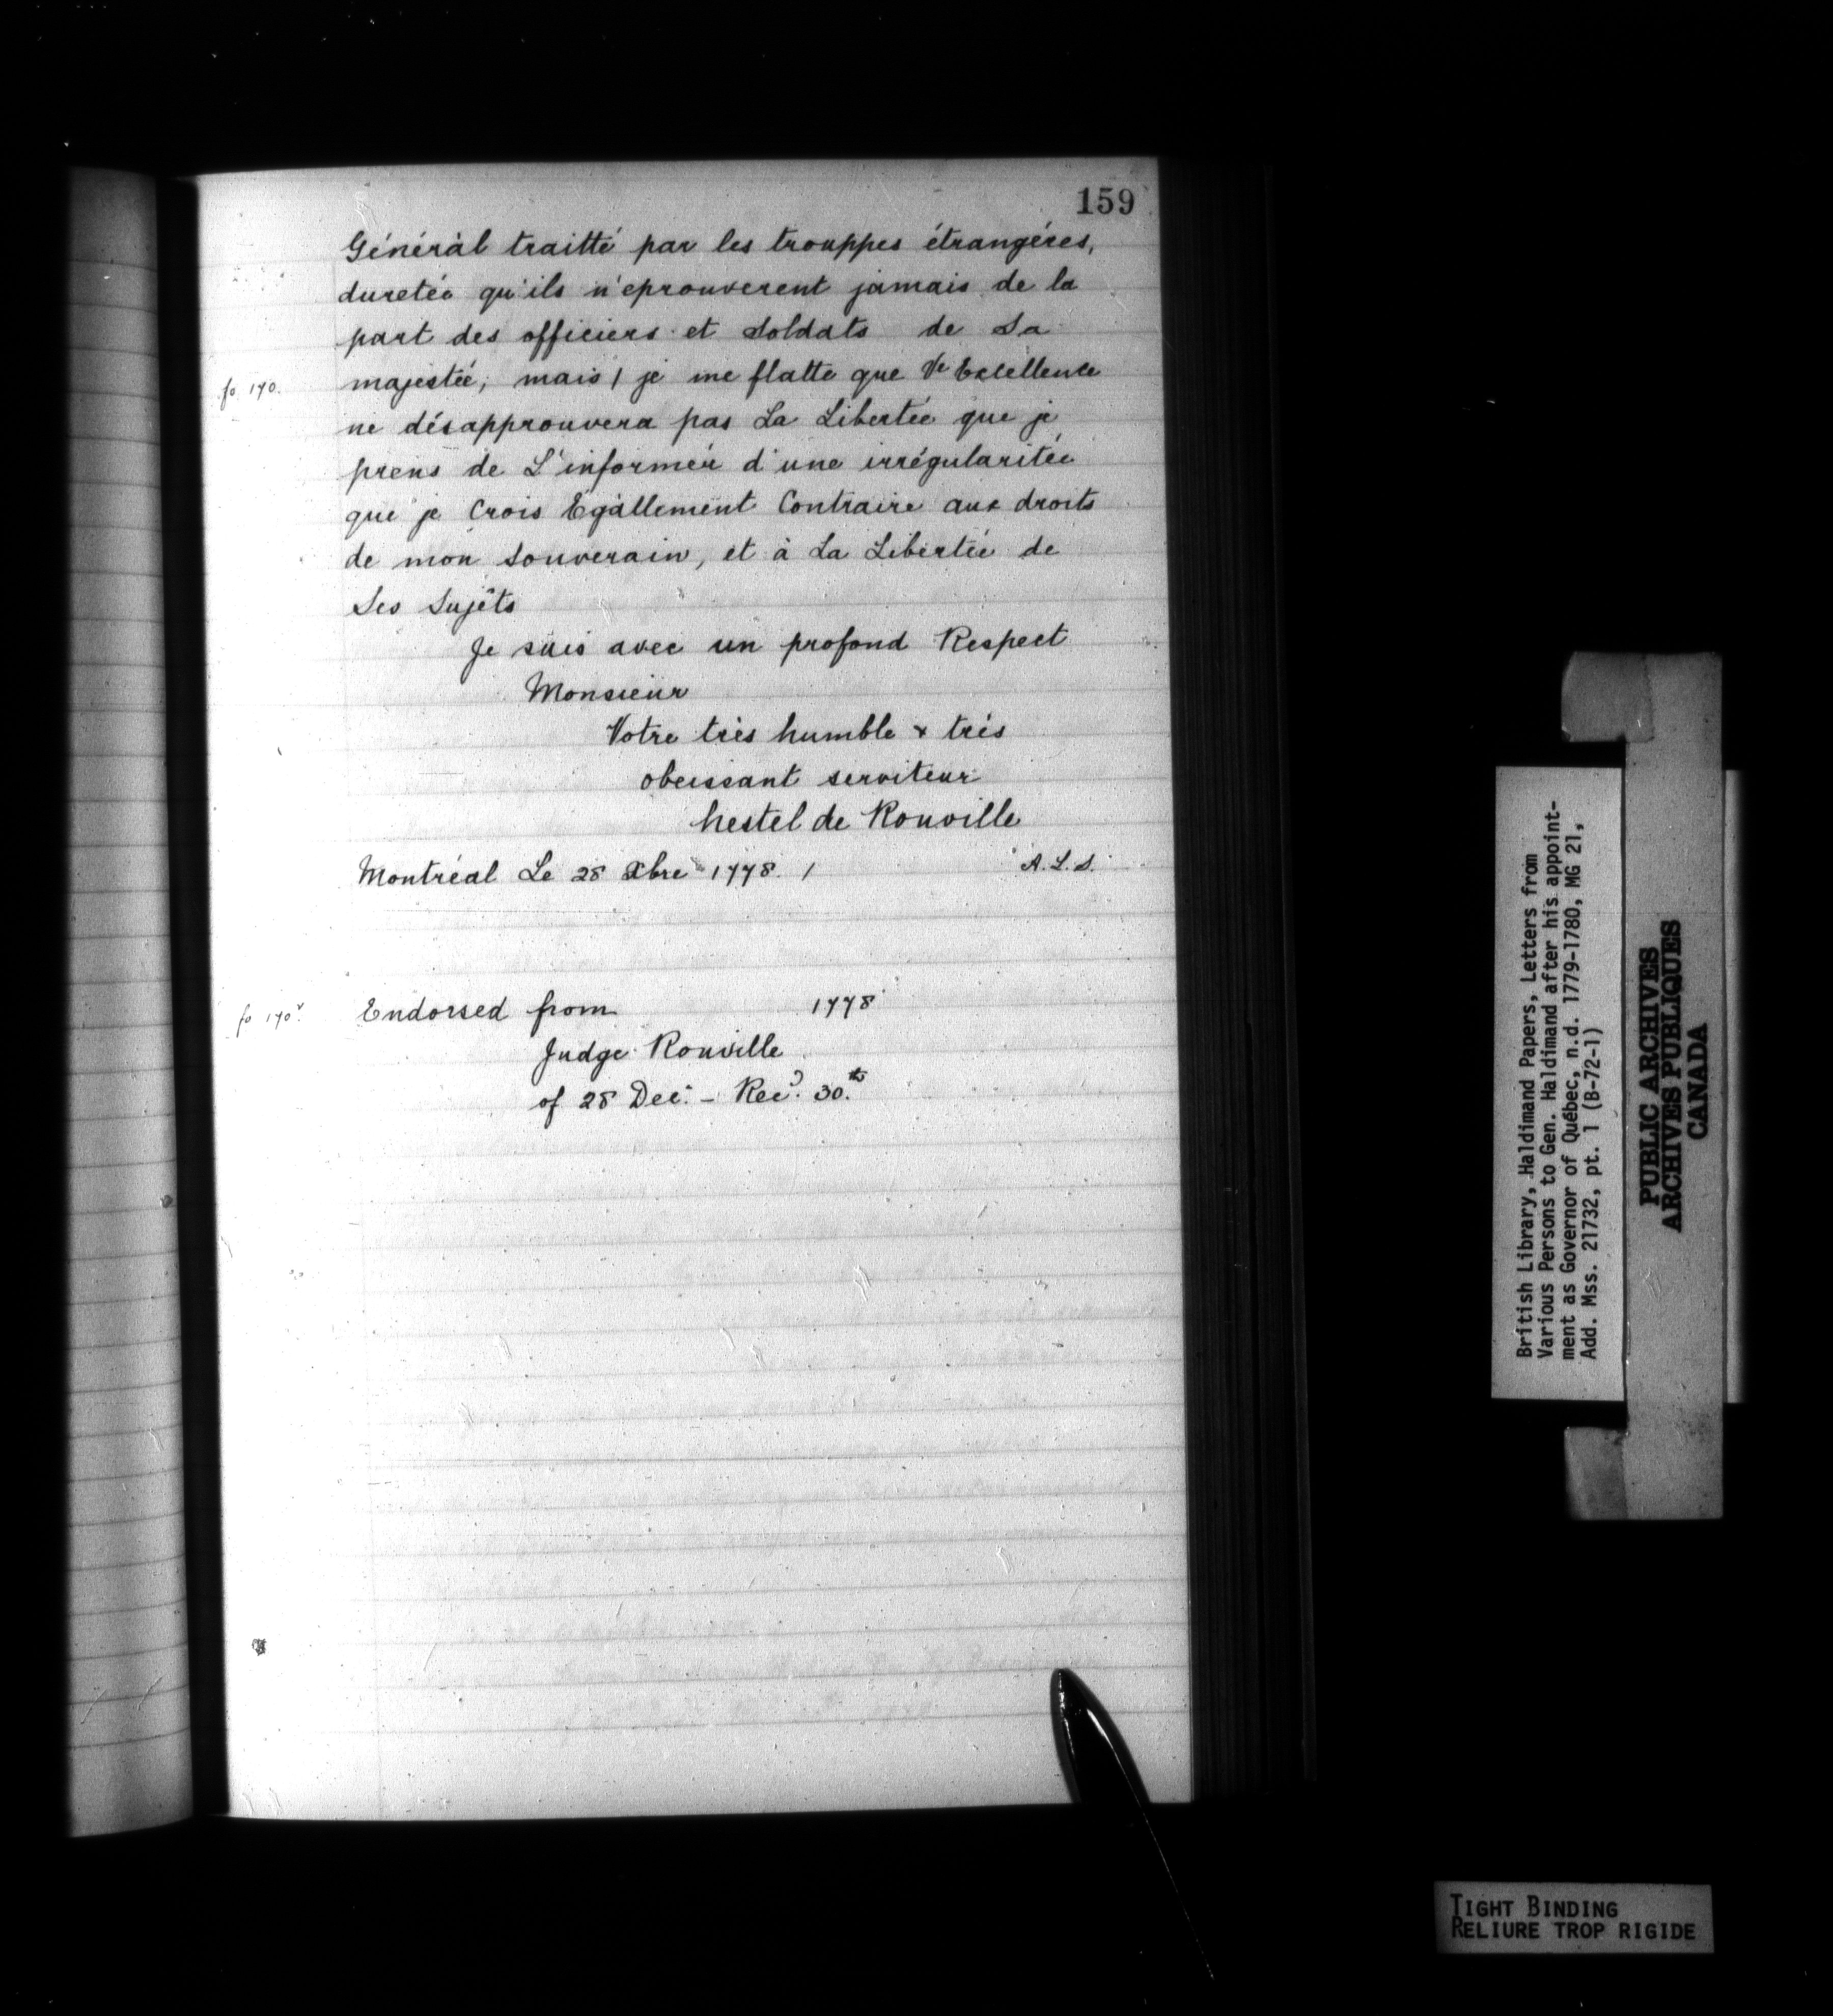 159
Généràl traitté par les trouppes étrangéres,
duretée qu'ils n'eprouverent jamais de la
part des officiers et Soldats de Sa
fo 170. majestée, mais / je me flatte que Ve Excellence
ne désapprouvera pas La Libertée que je
prens de L'informér d'une irrégularitée
que je Crois Egàllement Contraire aux droits
de mon Souverain, et à La Libertée de
Ses Sujèts
Je suis avec un profond Respect
Monsieur
Votre très humble & trés
obeissant serviteur
hestel de Rouville
Montréal Le 28 Xbre 1778. / A.L.S.
fo 170v. Endorsed from 1778
Judge Rouville
of 28 Dec: - Recd. 30.th
British Library, Haldimand Papers, Letters from
Various Persons to Gen. Haldimand after his appoint-
ment as Governor of Québec, n.d. 1779-1780, MG 21,
Add. Mss. 21732, pt. 1 (B-72-1)
PUBLIC ARCHIVES
ARCHIVES PUBLIQUES
CANADA
TIGHT BINDING
RELIURE TROP RIGIDE